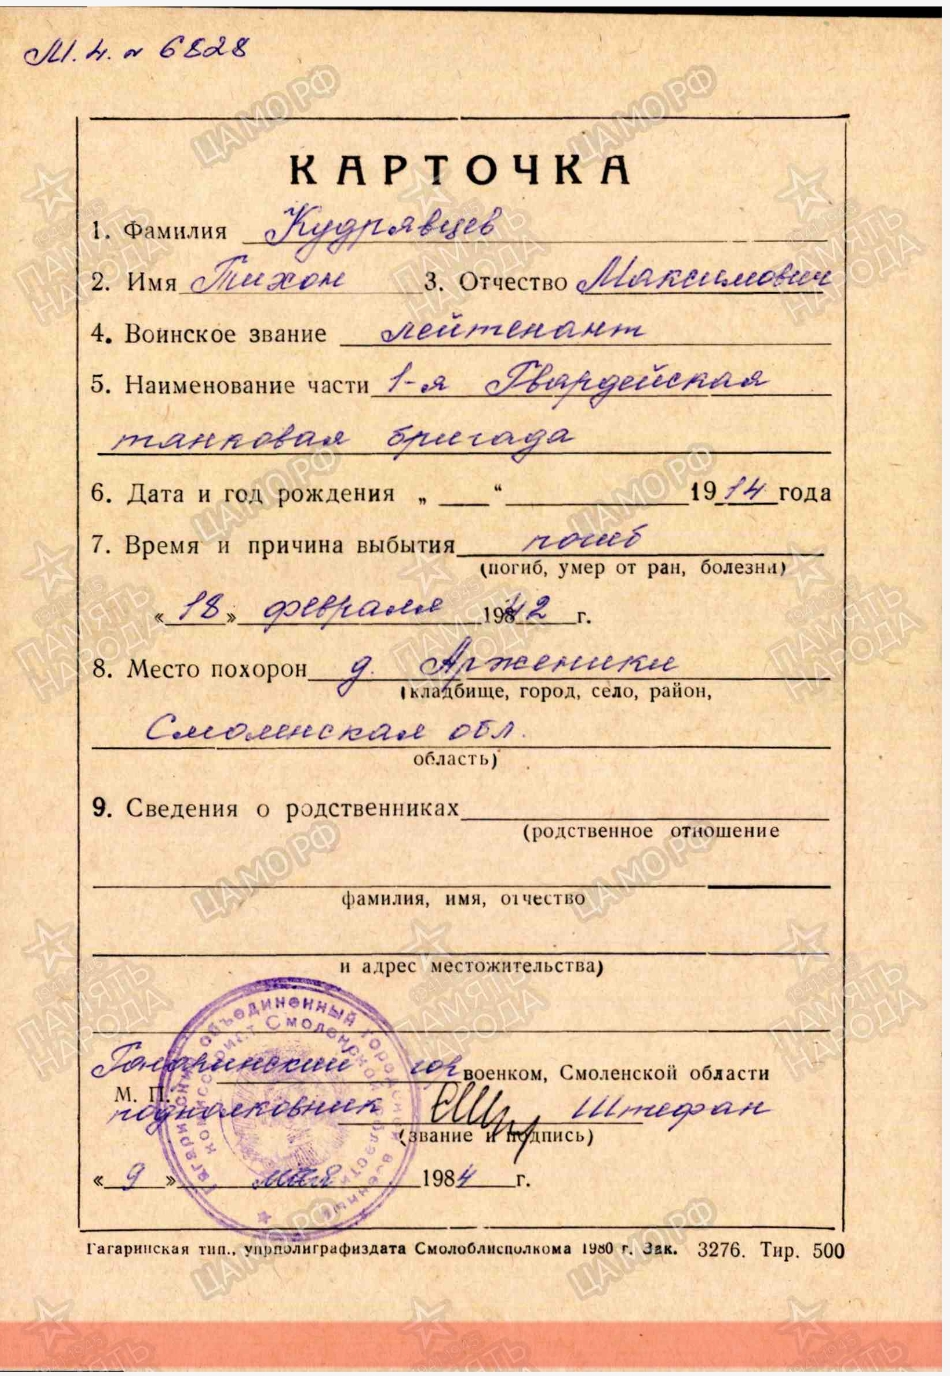 М.4. № 6828
КАРТОЧКА
1. Фамилия Кудрявцев
2. Имя Тихон 3. Отчество Максимович
4. Воинское звание лейтенант
5. Наименование части 1-я Гвардейская
танковая бригада
6. Дата и год рождения „ “ 1914 года
7. Время и причина выбытия погиб
(погиб, умер от ран, болезни)
«18» февраля 1942 г.
8. Место похорон д. Арженики
(кладбище, город, село, район,
Смоленская обл.
область)
9. Сведения о родственниках
(родственное отношение
фамилия, имя, отчество
и адрес местожительства)
Гагаринский гор военком, Смоленской области
М. П.
подполковник Штефан
(звание и подпись)
«9» мая 1984 г.
Гагаринский объединенный городской военный
комиссариат Смоленской области
Гагаринская тип., упрполиграфиздата Смолоблисполкома 1980 г. Зак. 3276. Тир. 500
ЦАМО.РФ
ПАМЯТЬ НАРОДА